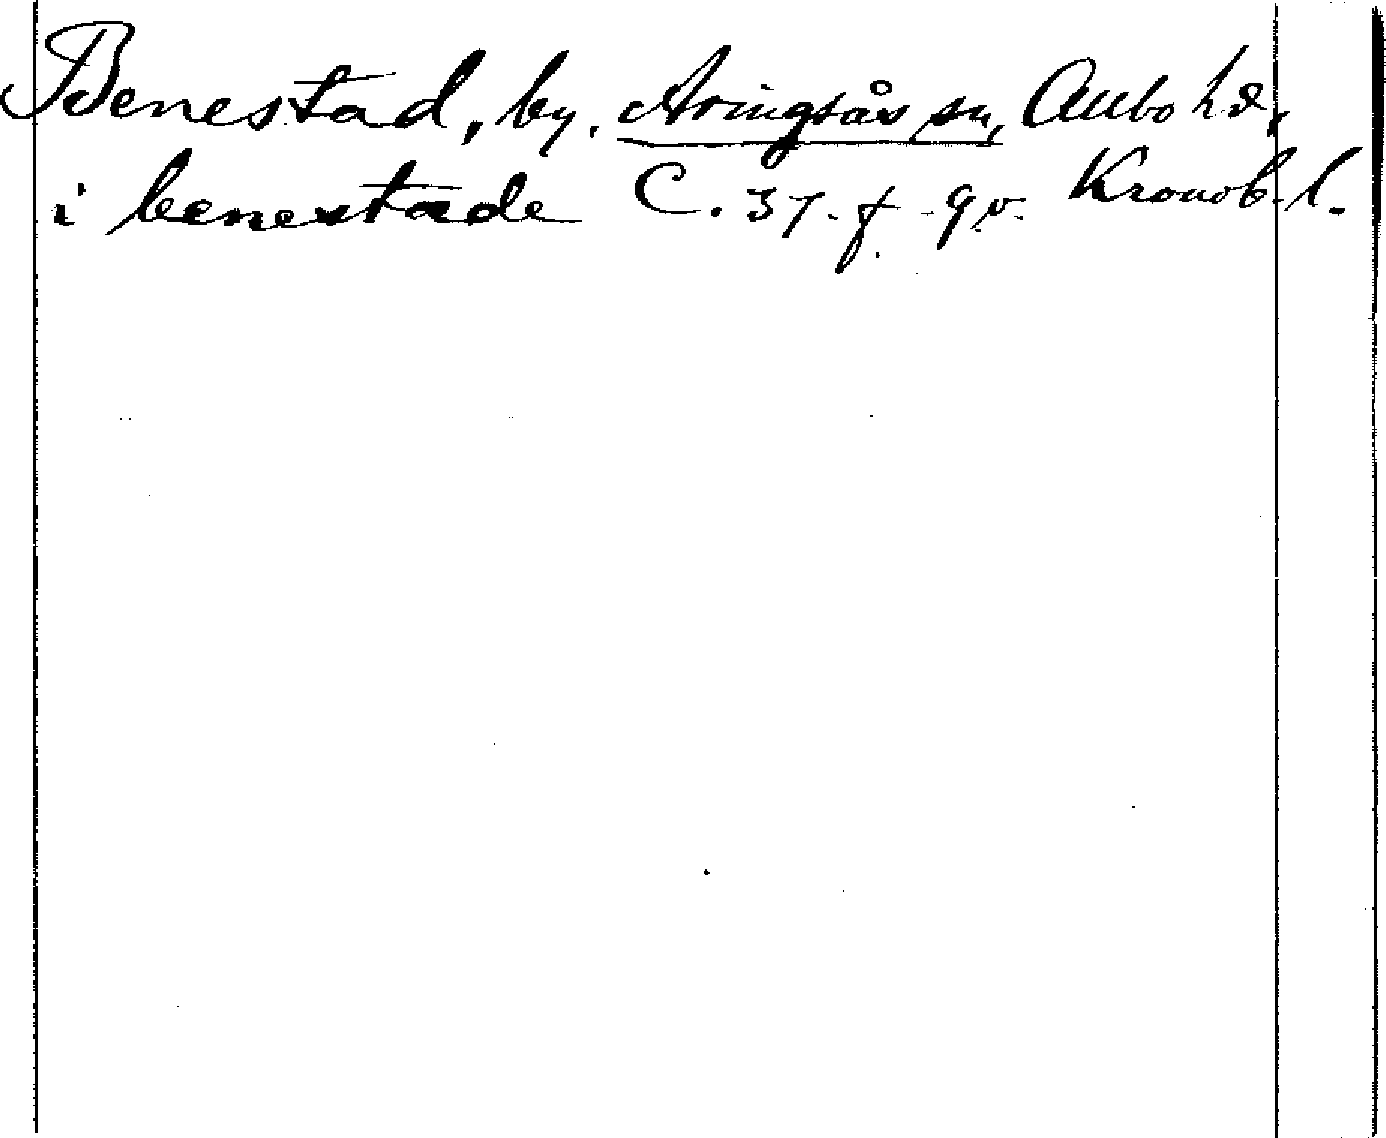 Benestad, by. Aringsås sn, Allbo hd,
i benestade C. 37. f. 9 v. Kronob. l.